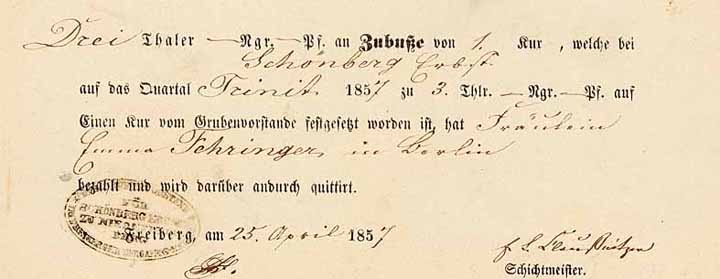 Drei Thaler —Ngr.—Pf. an Zubuße von 1. Kux, welche bei
Schönberg Erbst.
auf das Quartal Trinit. 1857 zu 3. Thlr. —Ngr.—Pf. auf
Einen Kux vom Grubenvorstande festgesetzt worden ist, hat Fräulein
Emma Fehringer, in Berlin
bezahlt und wird darüber andurch quittirt.
FÖR
SCHÖNBERG
ZU
Freiberg, am 25. April 1857
Schichtmeister.